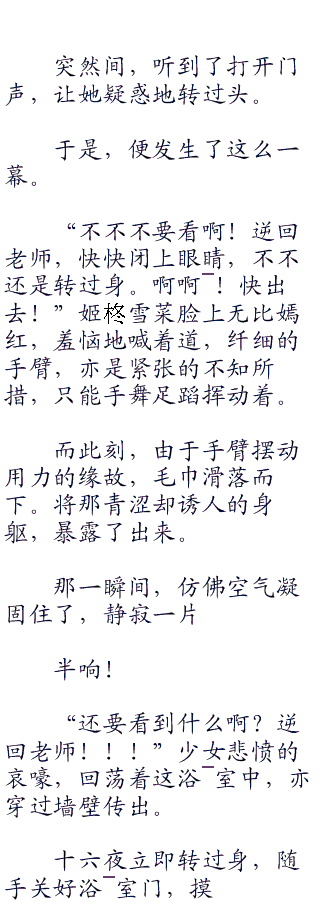 突然间，听到了打开门
声，让她疑惑地转过头。
于是，便发生了这么一
幕。
“不不不要看啊！逆回
老师，快快闭上眼睛，不不
还是转过身。啊啊¯！快出
去！”姬柊雪菜脸上无比嫣
红，羞恼地喊着道，纤细的
手臂，亦是紧张的不知所
措，只能手舞足蹈挥动着。
而此刻，由于手臂摆动
用力的缘故，毛巾滑落而
下。将那青涩却诱人的身
躯，暴露了出来。
那一瞬间，仿佛空气凝
固住了，静寂一片
半响！
“还要看到什么啊？逆
回老师！！！”少女悲愤的
哀嚎，回荡着这浴¯室中，亦
穿过墙壁传出。
十六夜立即转过身，随
手关好浴¯室门，摸